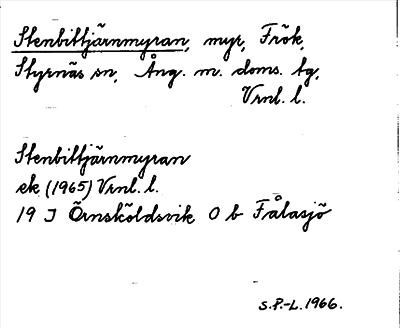 Stenbittjärnmyran, myr, Frök,
Styrnäs sn, Ång. m. doms. tg,
Vrnl. l.
Stenbittjärnmyran
ek (1965) Vrnl. l.
19 J Örnsköldsvik 0 b Fålasjö
S.P.-L. 1966.